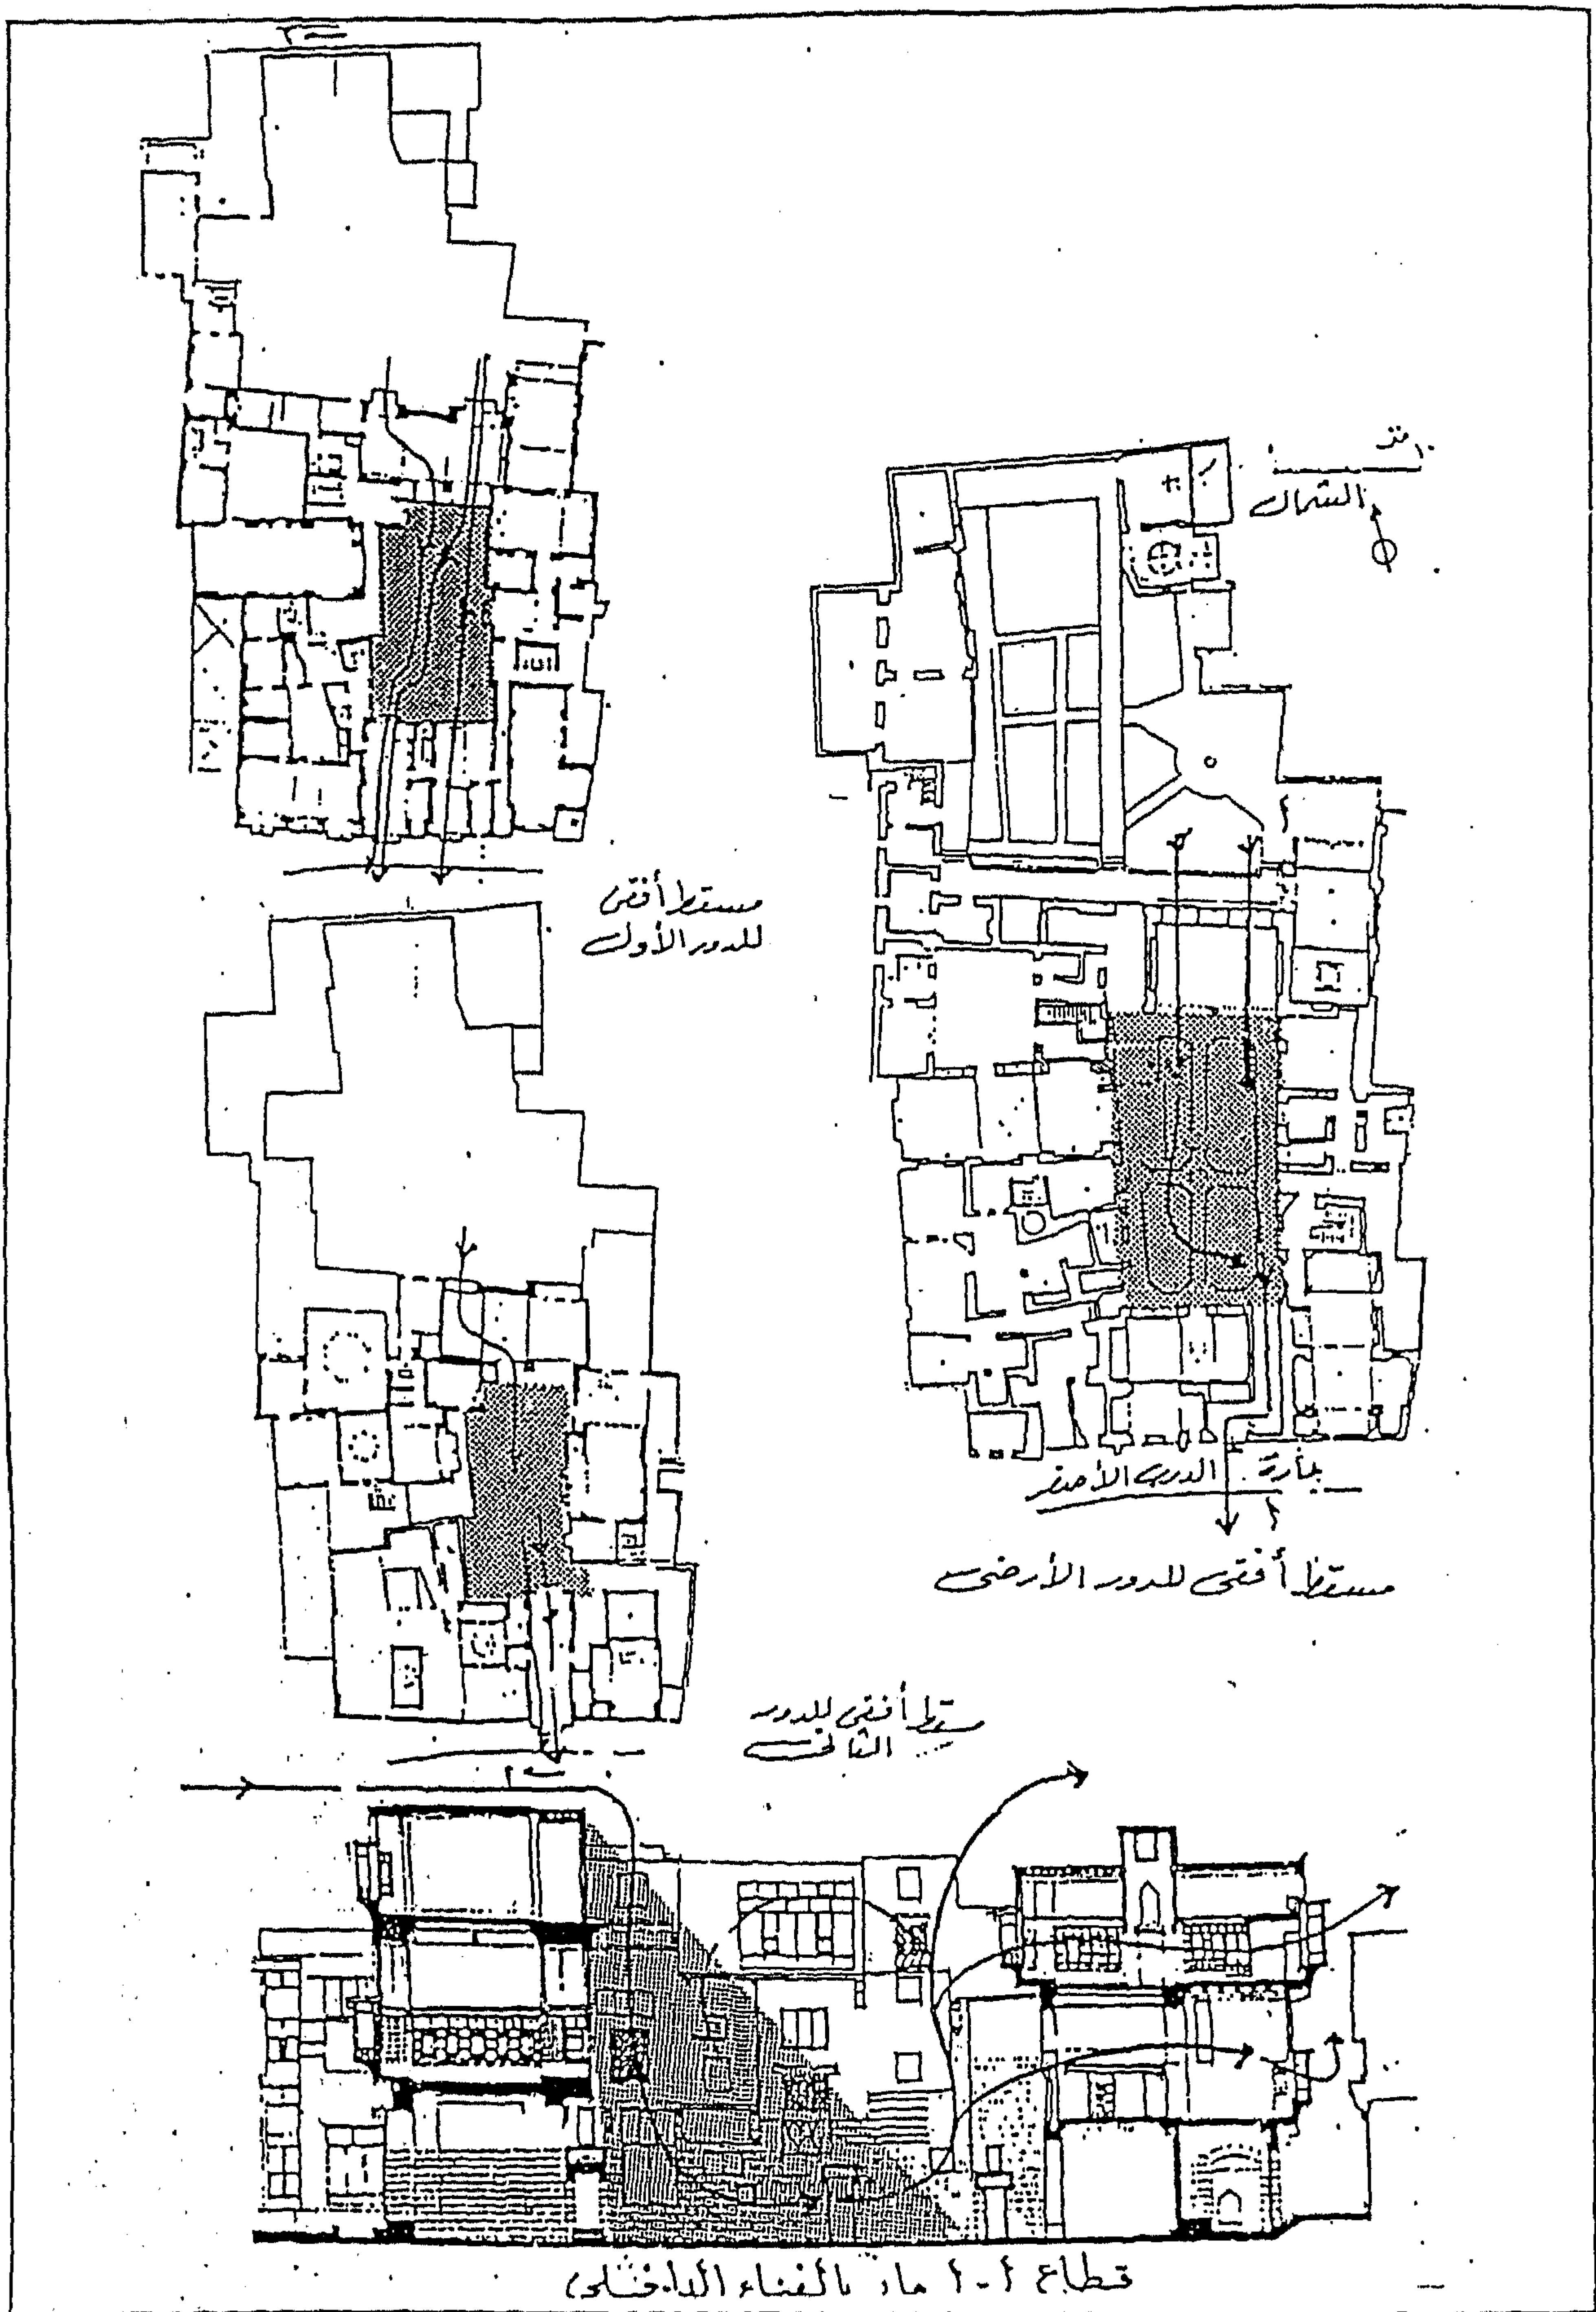 ١٠ متر
الشمال
مسقط أفقى
للدور الأول
بحارة الدرب الأصفر
مسقط أفقى للدور الأرضى
مسقط أفقى للدور
الثانى
قطاع أ - أ مار بالفناء الداخلى